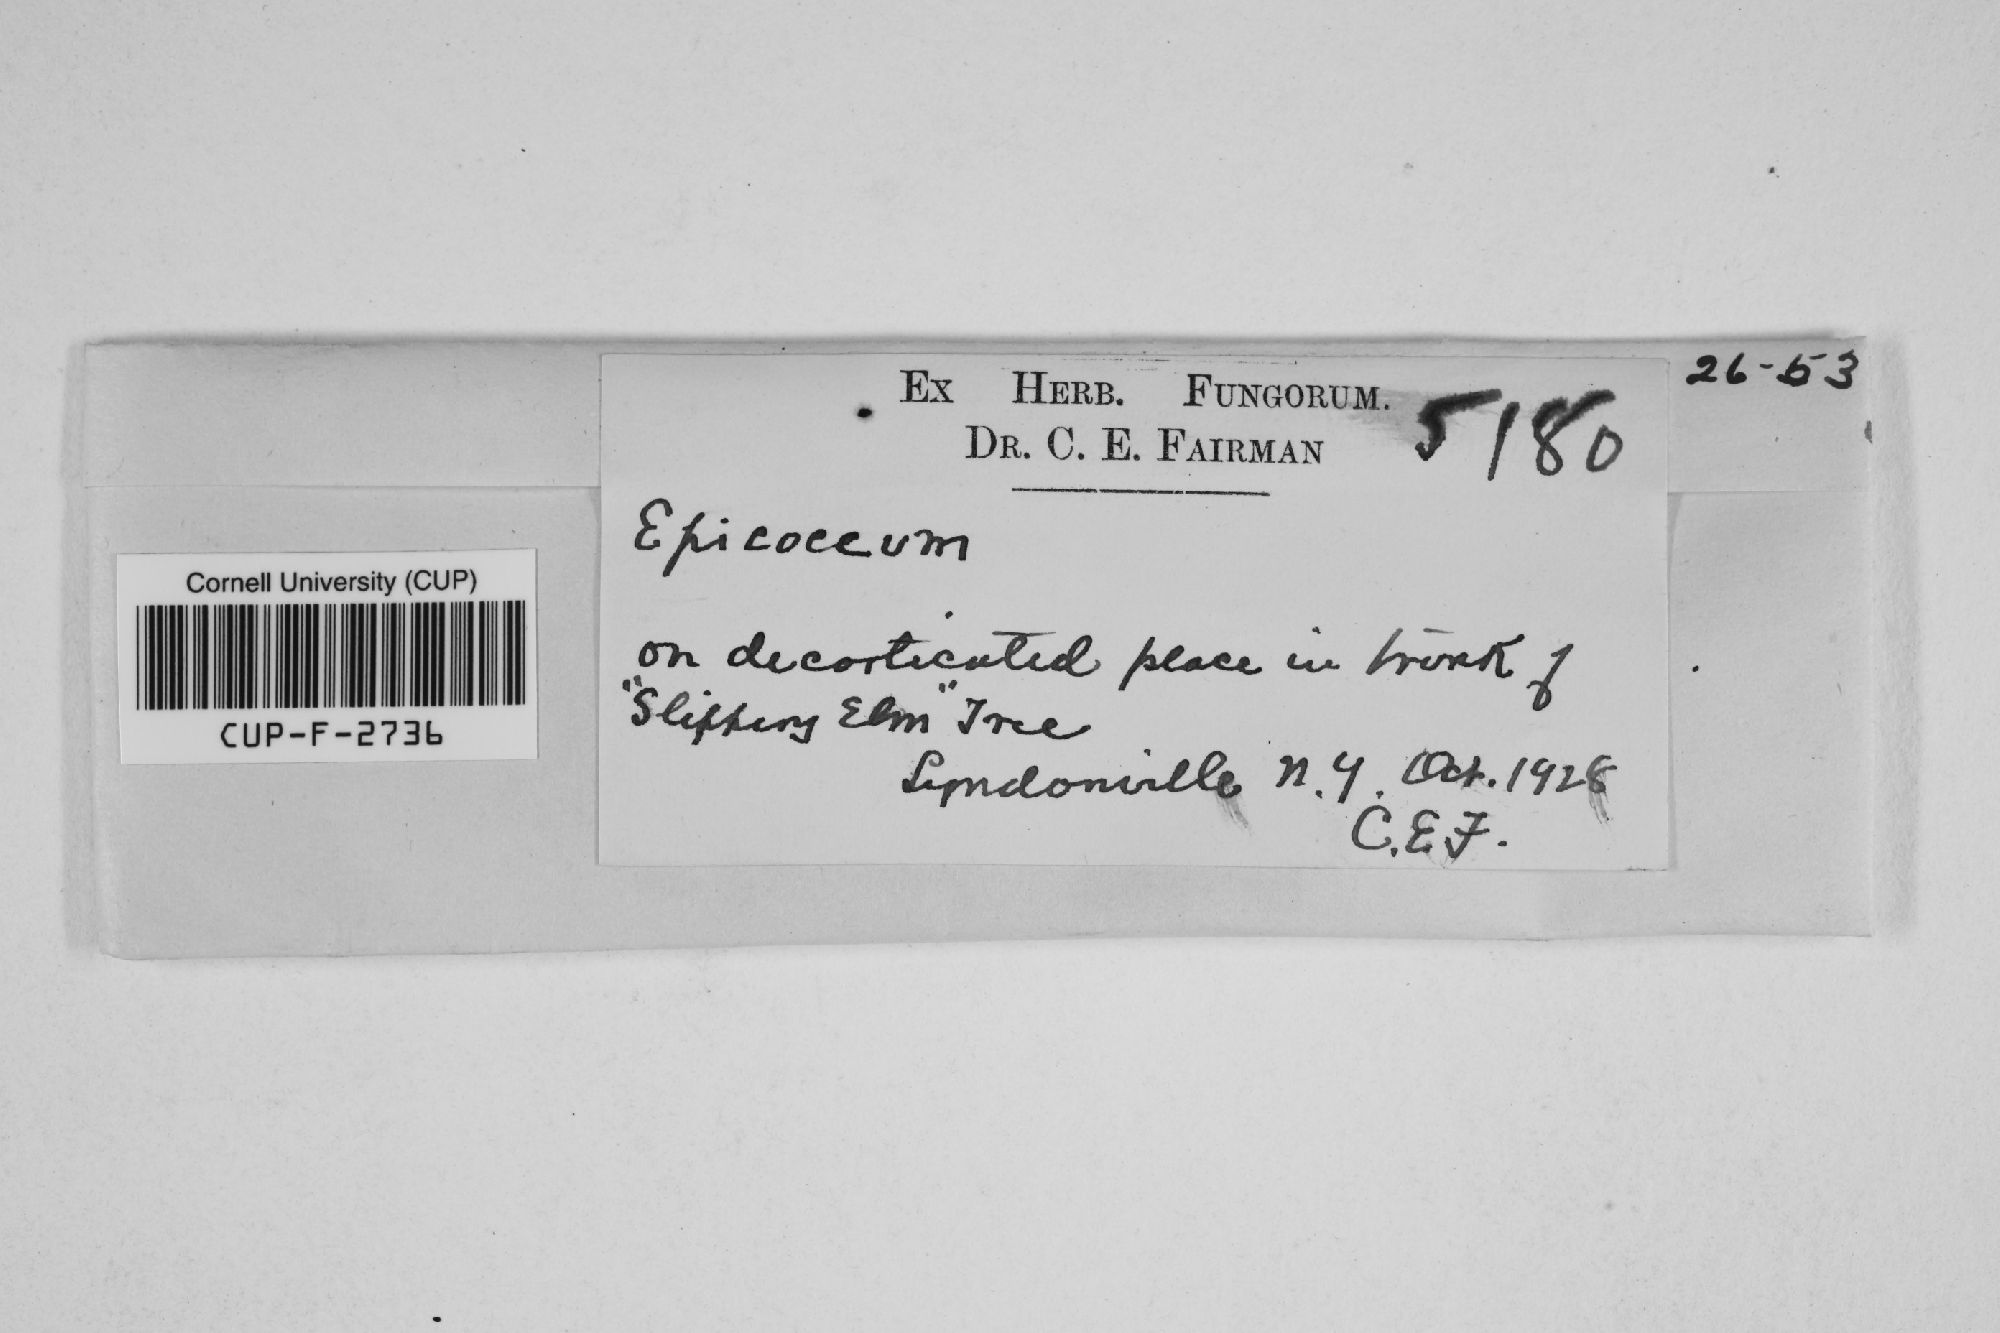 26-53
Ex Herb. Fungorum. 5180
Dr. C. E. Fairman
Epicoccum
on decorticated place in trunk of
"Slippery Elm" Tree
Lyndonville N.Y. Oct. 1928
C.E.F.
Cornell University (CUP)
CUP-F-2736